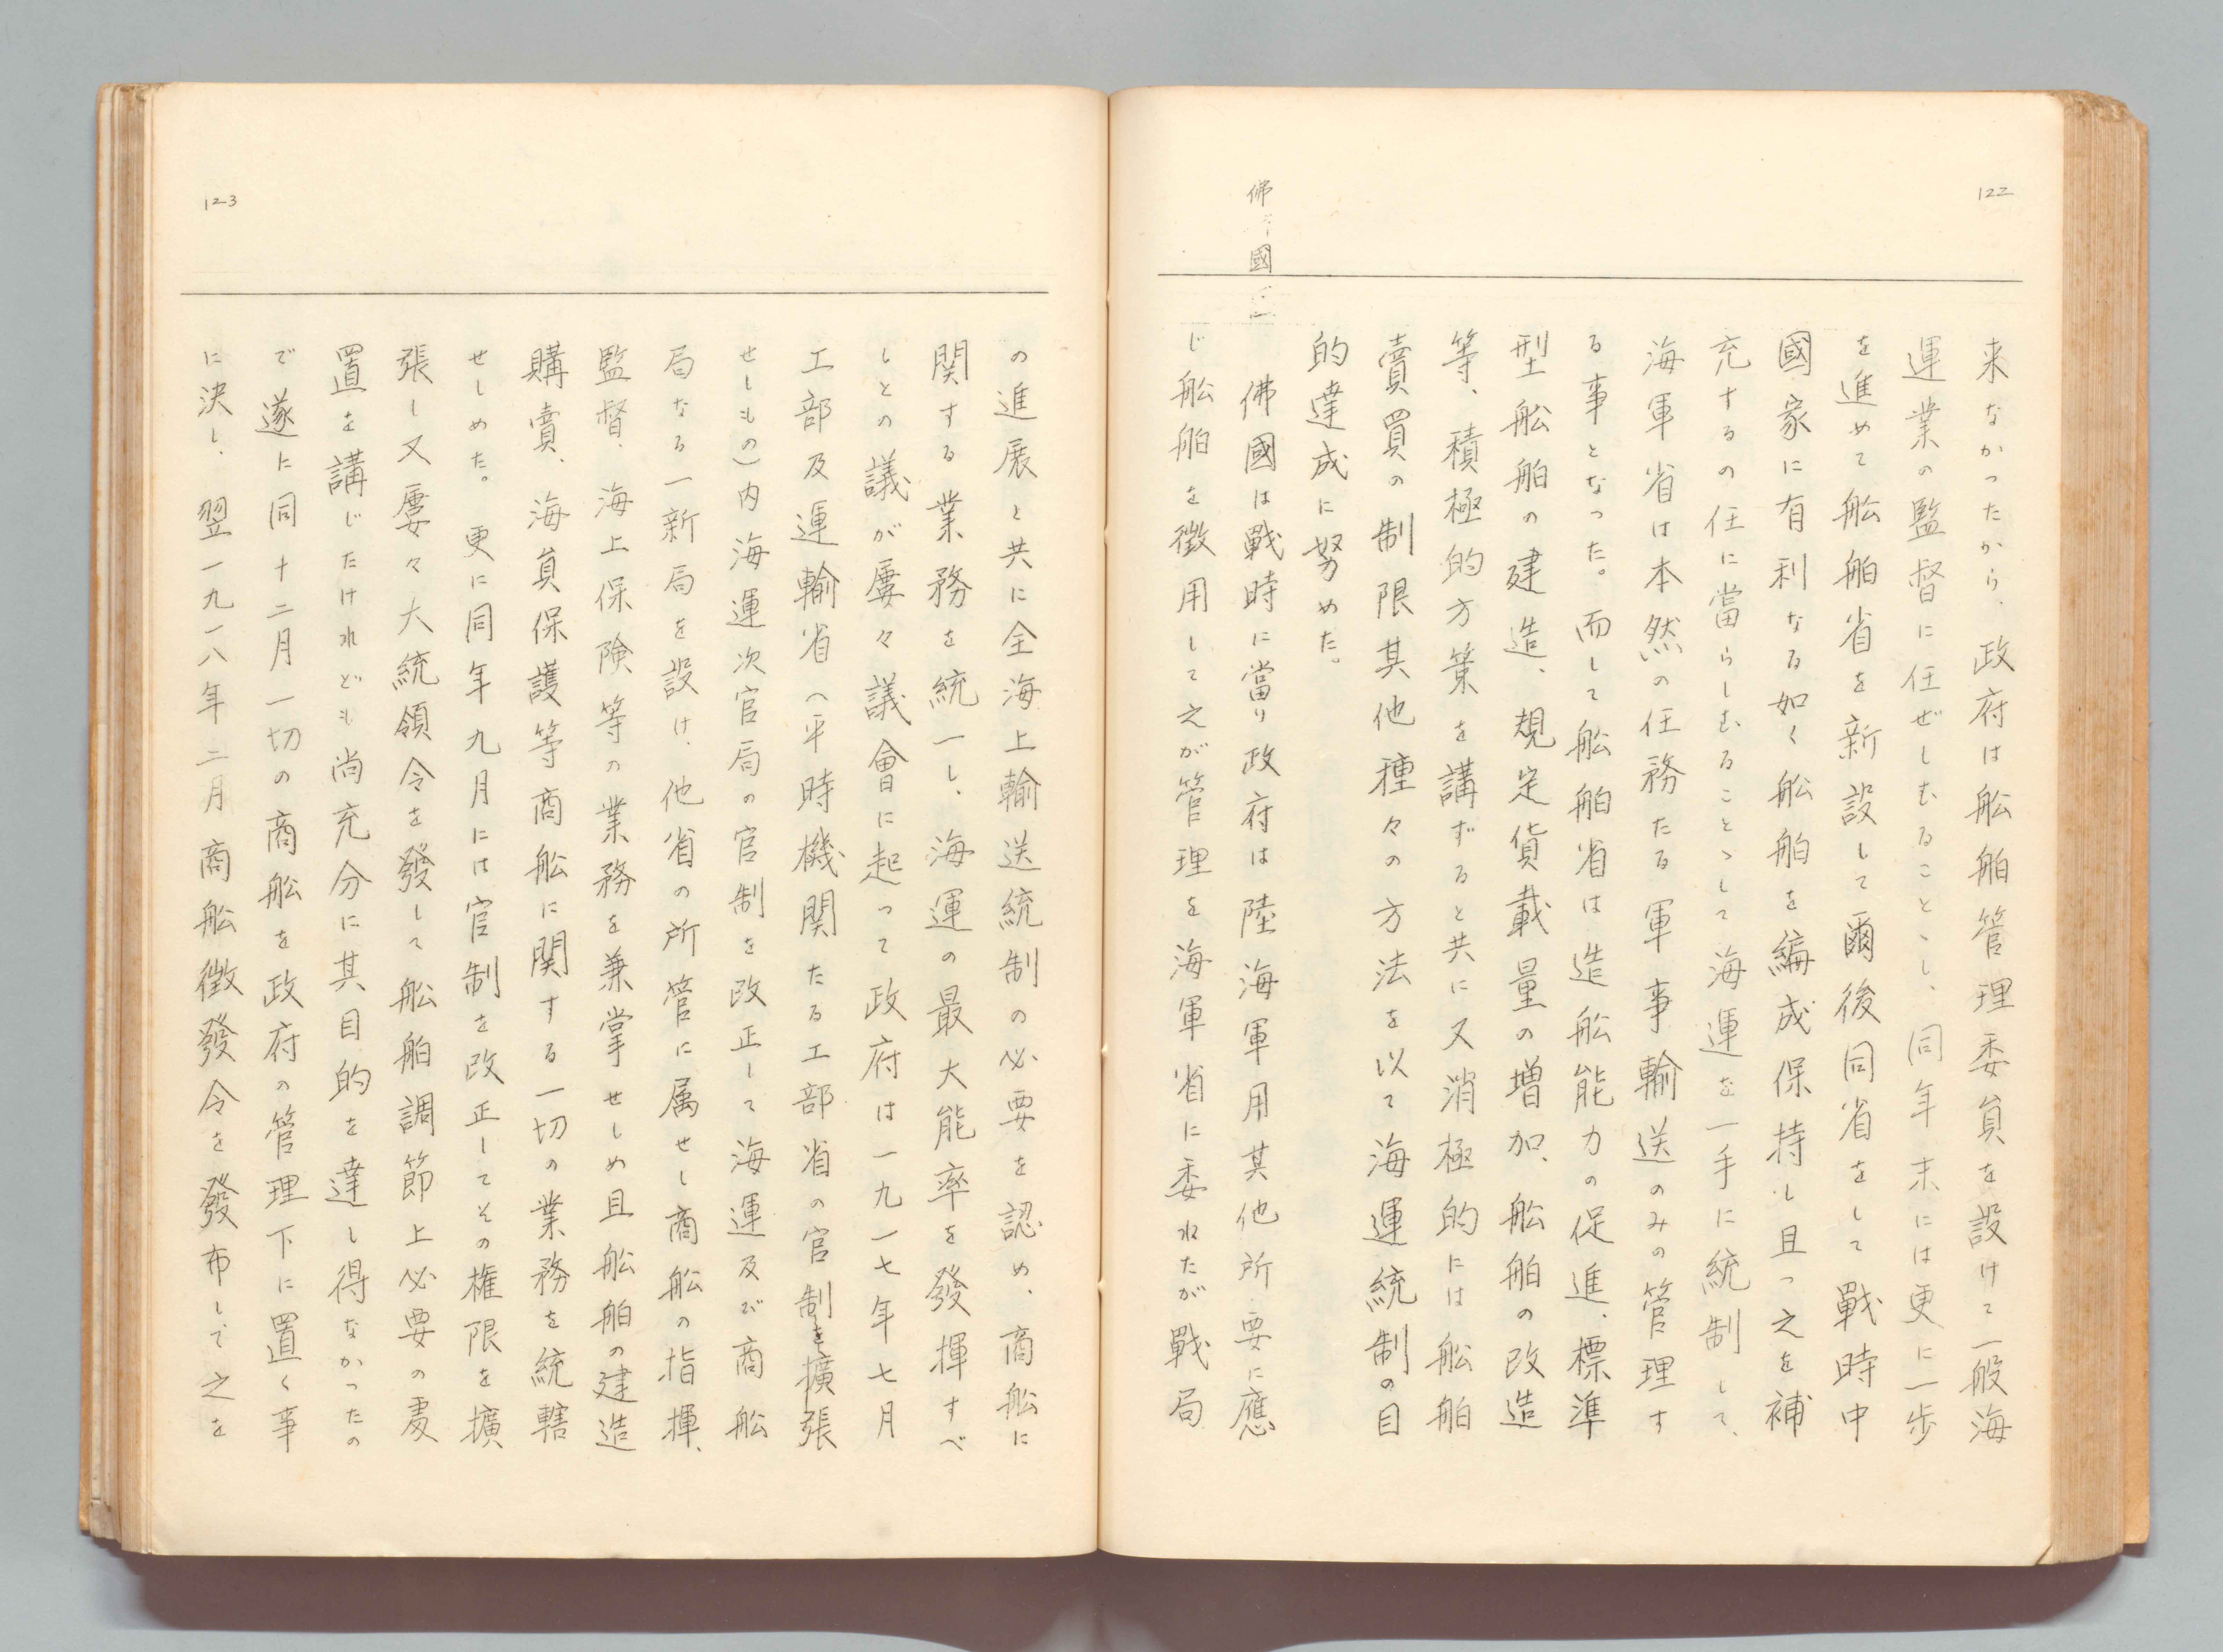 122
佛國
来なかったから、政府は舩舶管理委員を設けて一般海
運業の監督に任ぜしむることゝし、同年末には更に一歩
を進めて舩舶省を新設して爾後同省をして戰時中
國家に有利なる如く舩舶を編成保持し且つ之を補
充するの任に當らしむることゝして海運を一手に統制して、
海軍省は本然の任務たる軍事輸送のみの管理す
る事となった。而して舩舶省は造舩能力の促進、標準
型舩舶の建造、規定貨載量の増加、舩舶の改造
等、積極的方策を講ずると共に又消極的には舩舶
賣買の制限其他種々の方法を以て海運統制の目
的達成に努めた。
佛國は戰時に當り政府は陸海軍用其他所要に應
じ舩舶を徴用して之が管理を海軍省に委ねたが戰局
123
の進展と共に全海上輸送統制の必要を認め、商舩に
関する業務を統一し、海運の最大能率を發揮すべ
しとの議が屢々議會に起って政府は一九一七年七月
工部及運輸省（平時機関たる工部省の官制を擴張
せしもの）内海運次官局の官制を改正して海運及び商舩
局なる一新局を設け、他省の所管に属せし商舩の指揮、
監督、海上保険等の業務を兼掌せしめ且舩舶の建造
購賣、海員保護等商舩に関する一切の業務を統轄
せしめた。更に同年九月には官制を改正してその権限を擴
張し又屢々大統領令を發して舩舶調節上必要の処
置を講じたけれども尚充分に其目的を達し得なかったの
で遂に同十二月一切の商舩を政府の管理下に置く事
に決し、翌一九一八年二月商舩徴發令を發布して之を